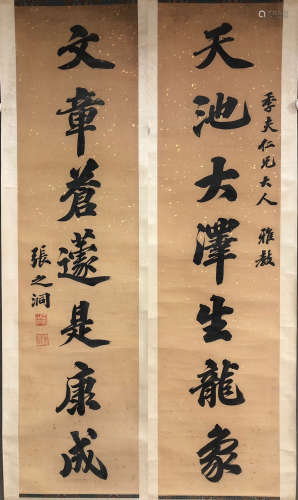 天池大澤生龍象
季夫仁兄大人 雅教
文章蒼邃是康成
張之洞